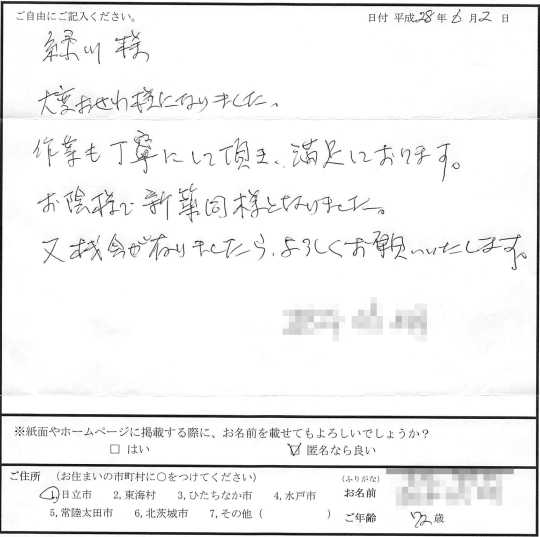 ご自由にご記入ください。 日付 平成28年6月2日
緑川様
大変おせわ様になりました。
作業も丁寧にして頂き、満足しております。
お陰様で新築同様となりました。
又機会が有りましたら、よろしくお願いいたします。
※紙面やホームページに掲載する際に、お名前を載せてもよろしいでしょうか?
□ はい ☑ 匿名なら良い
ご住所 (お住まいの市町村に○をつけてください) (ふりがな)
1,日立市 2,東海村 3,ひたちなか市 4,水戸市 お名前
5,常陸太田市 6,北茨城市 7,その他( ) ご年齢 72歳